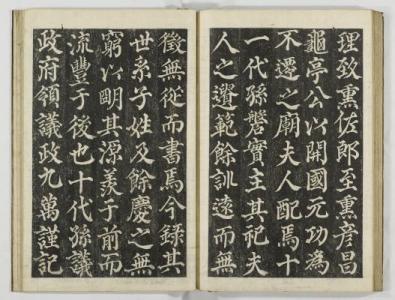 理致熏佐郎至熏彦昌
龜亭公以開國元功為
不遷之廟夫人配焉十
一代孫磐實主其祀夫
人之遺範餘訓遠而無
徵無從而書焉今錄其
世系子姓及餘慶之無
窮以明其源羨于前而
流豐于後也十代孫議
政府領議政九萬謹記